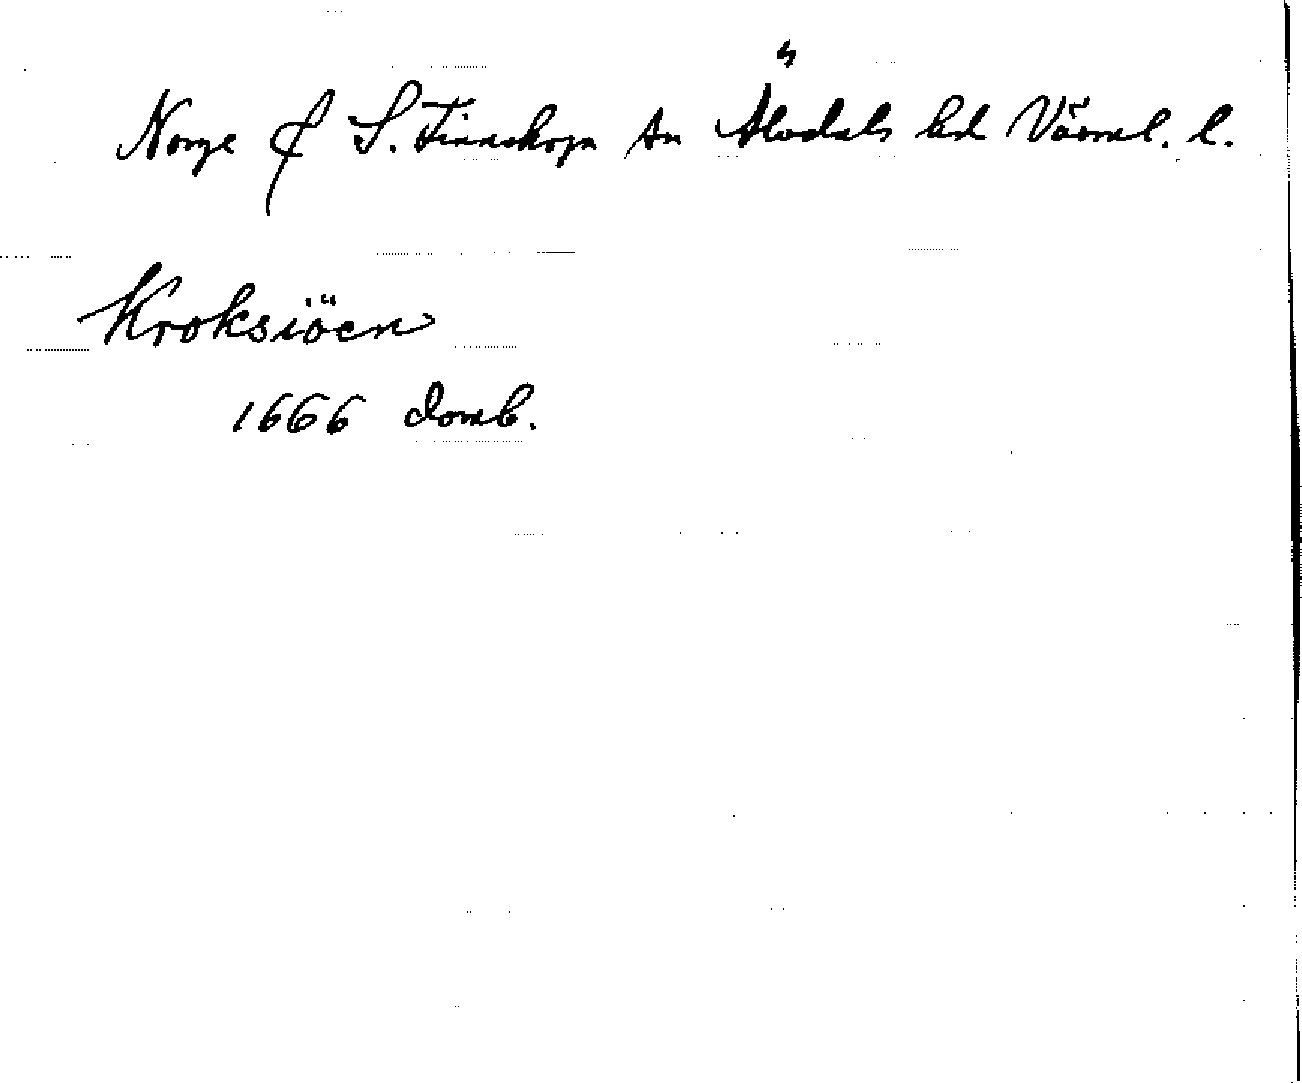 Norge & S. Finnskoga sn Älvdals hd Värml. l.
Kroksiöen
1666 domb.